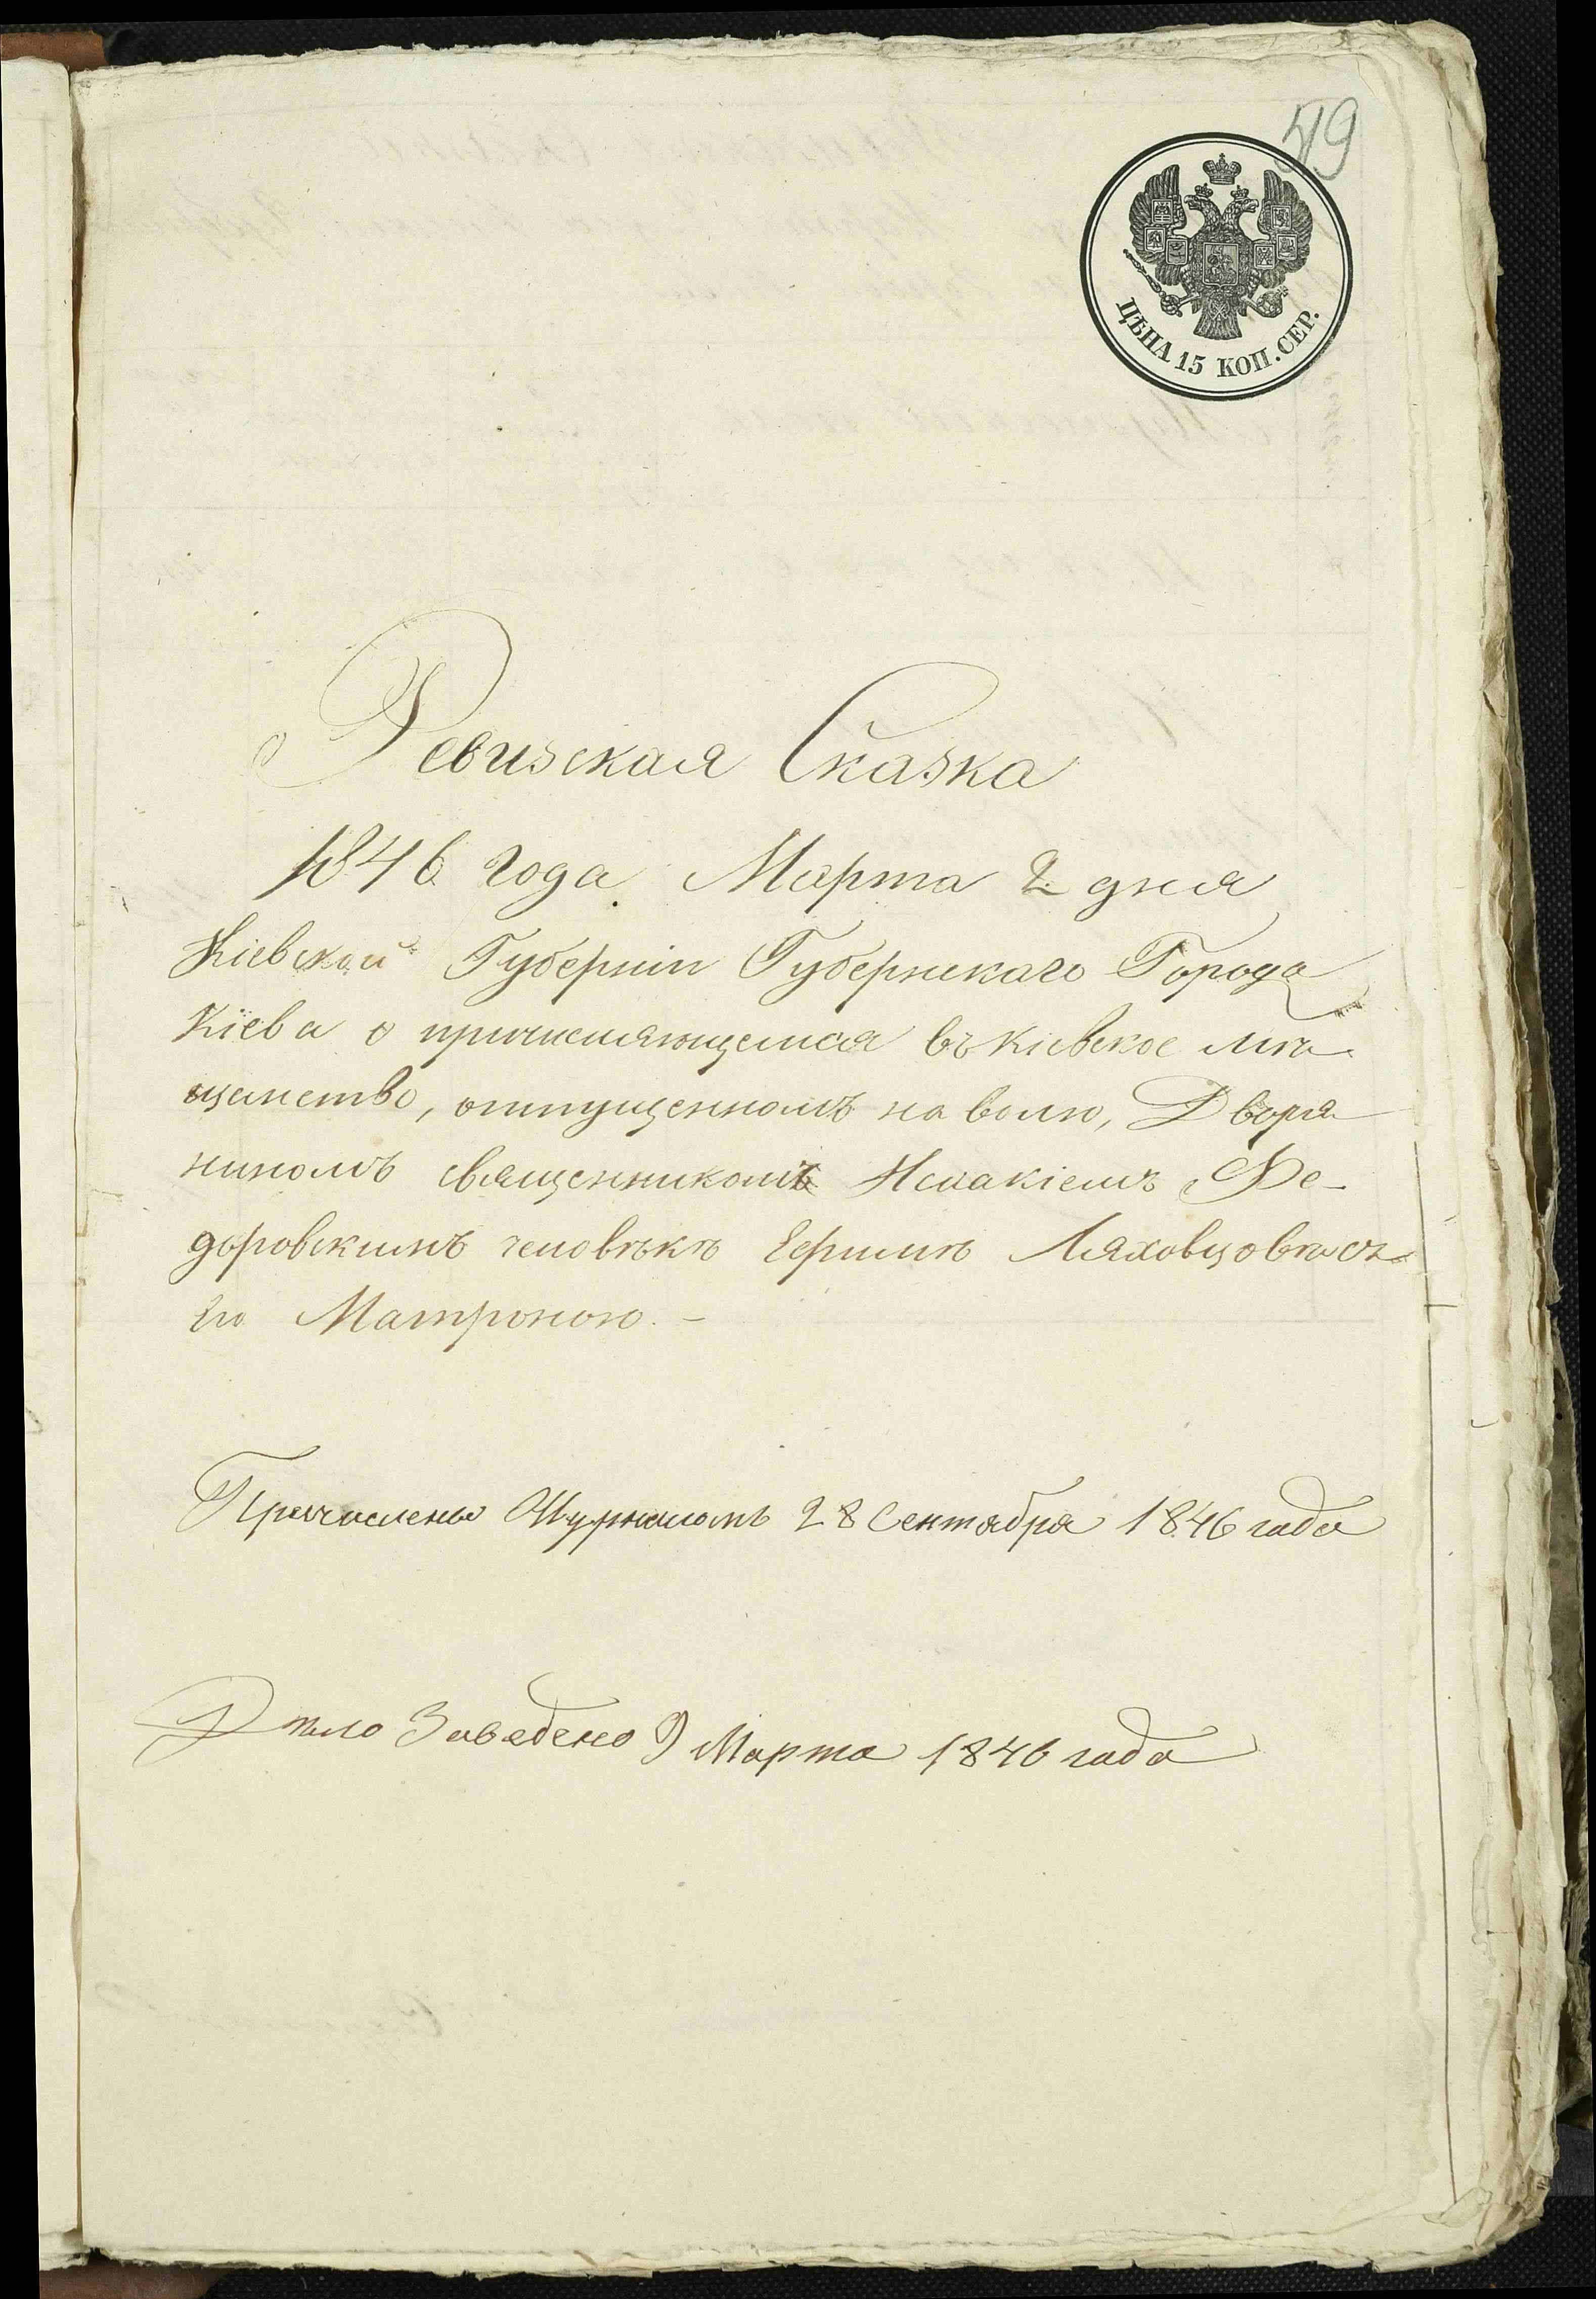 519
ЦѢНА 15 КОП. СЕР.
Ревизская Сказка
1846 года Марта 2 дня
Кіевской Губерніи Губернскаго Города
Кіева о причисляющемся въ кіевское мѣ
щанство, отпущенномъ на волю, Дворя
ниномъ священникомъ Исаакіемъ Фе-
доровскимъ человѣкѣ Ефимѣ Ляховцовѣ съ
Матроною. -
Причислены Журналомъ 28 Сентября 1846 года
Дѣло Заведено 9 Марта 1846 года